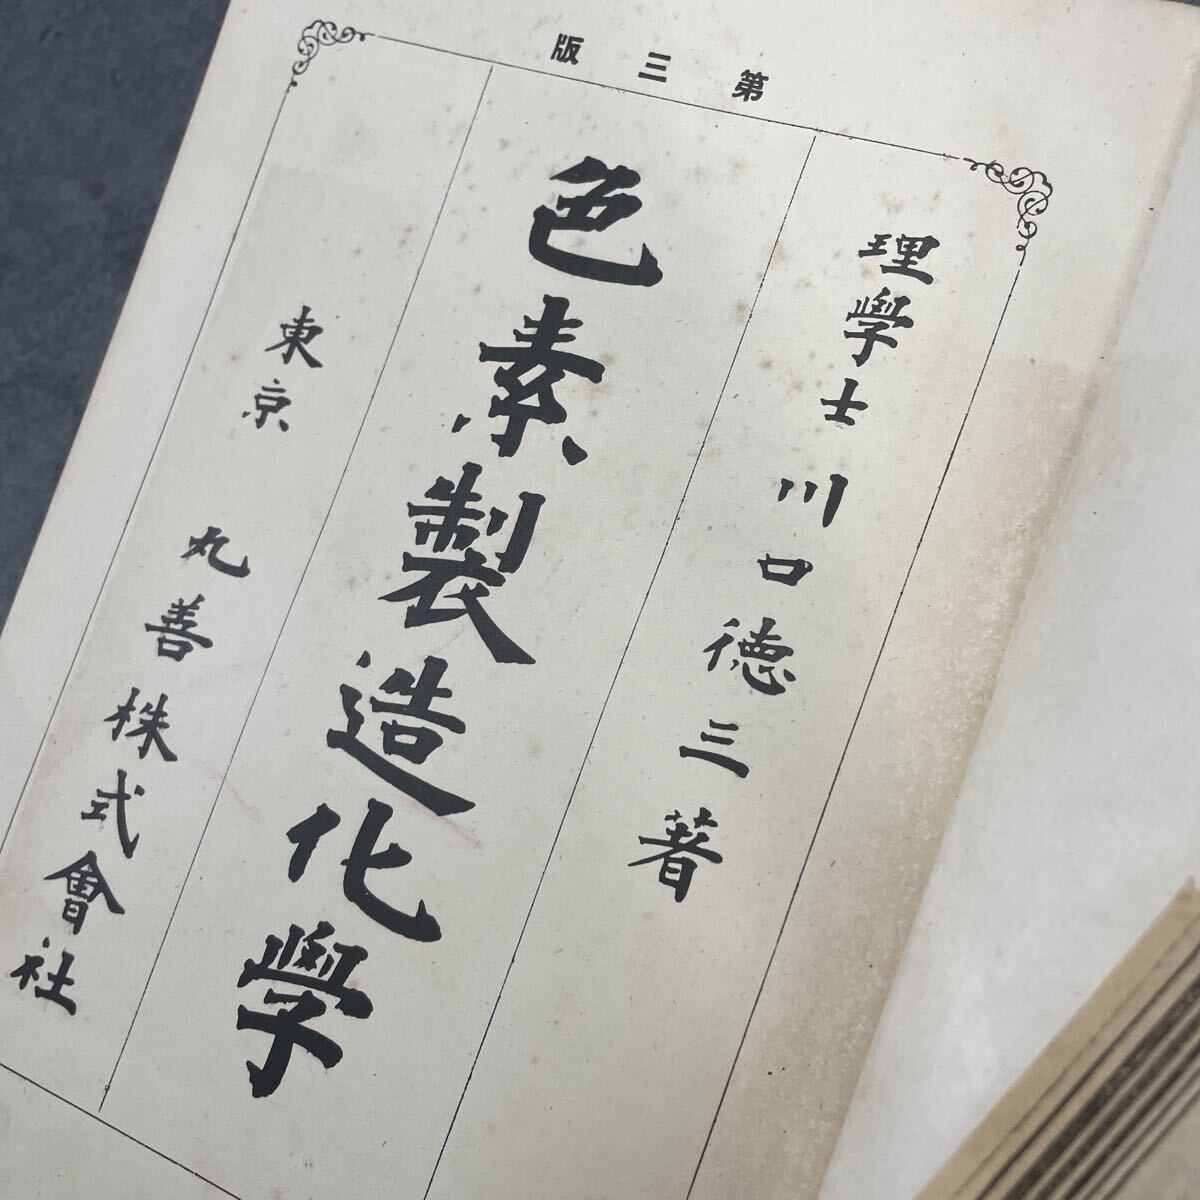 第三版
理學士 川口德三著
色素製造化學
東京 丸善株式會社